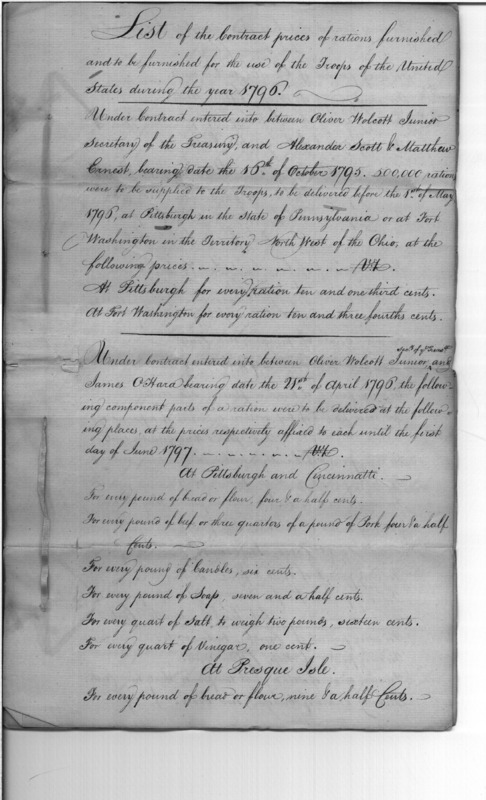 List of the Contract prices of rations furnished
and to be furnished for the use of the Troops of the United
States during the year 1796.
Under Contract entered into between Oliver Wolcott Junior
Secretary of the Treasury, and Alexander Scott & Matthew
Ernest, bearing date the 16th of October 1795. 500,000 rations
were to be supplied to the Troops, to be delivered before the 1st of May
1796, at Pittsburgh in the State of Pennsylvania or at Fort
Washington in the Territory North West of the Ohio, at the
following prices
At Pittsburgh for every ration ten and one third cents.
At Fort Washington for every ration ten and three fourths cents.
Under Contract entered into between Oliver Wolcott Junior, and
James O'Hara bearing date the 21st of April 1796 the follow-
ing component parts of a ration were to be delivered at the follow-
ing places, at the prices respectively affixed to each until the first
day of June 1797.
At Pittsburgh and Cincinnatti.
For every pound of bread or flour, four & a half cents.
For every pound of beef or three quarters of a pound of Pork four & a half
Cents.
For every pound of Candles, six cents.
For every pound of Soap, seven and a half cents.
For every quart of Salt, to weigh two pounds, sixteen cents.
For every quart of Vinegar, one cent.
At Presque Isle.
For every pound of bread or flour, nine & a half Cents.